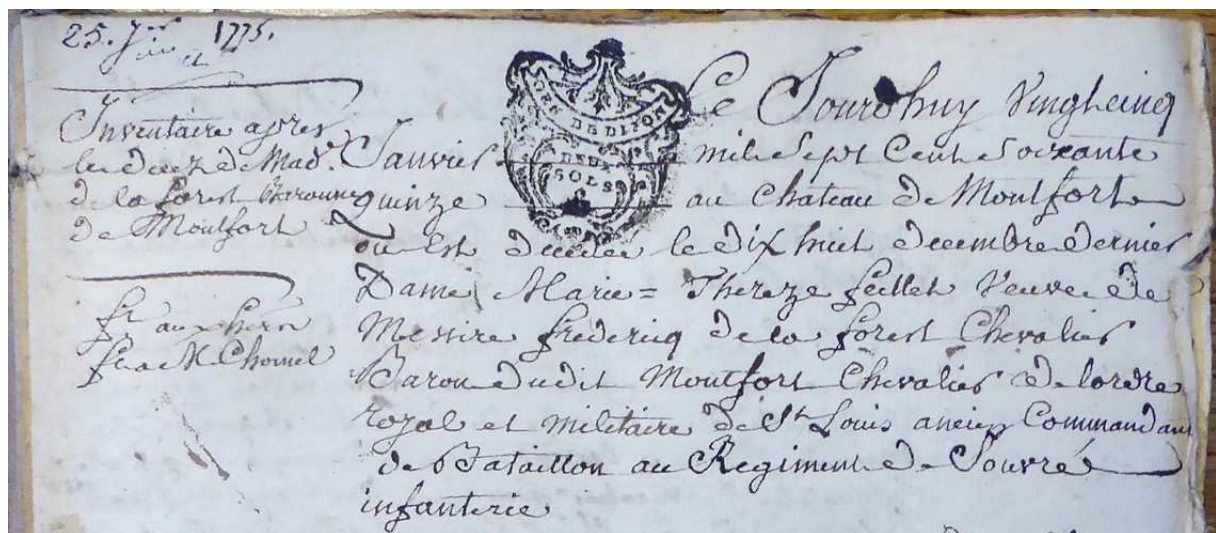 25. Jer 1775.
Inventaire apres
le decez de Made.
de la forest Baronne
de Montfort
ft aux hers
ft a M Chomel
GEN DE DIJON
DEUX
SOLS
Ce Jourdhuy Vingtcinq
Janvier mil Sept Cent Soixante
quinze au Chateau de Montfort
ou Est decedée le dix huit decembre dernier
Dame Marie = Thereze feillet Veuve de
Messire frederiq de la forest Chevalier
Baron dudit Montfort Chevalier de lordre
royal et militaire de St Louis ancien Commandant
de Bataillon au Regiment de Souvré
infanterie